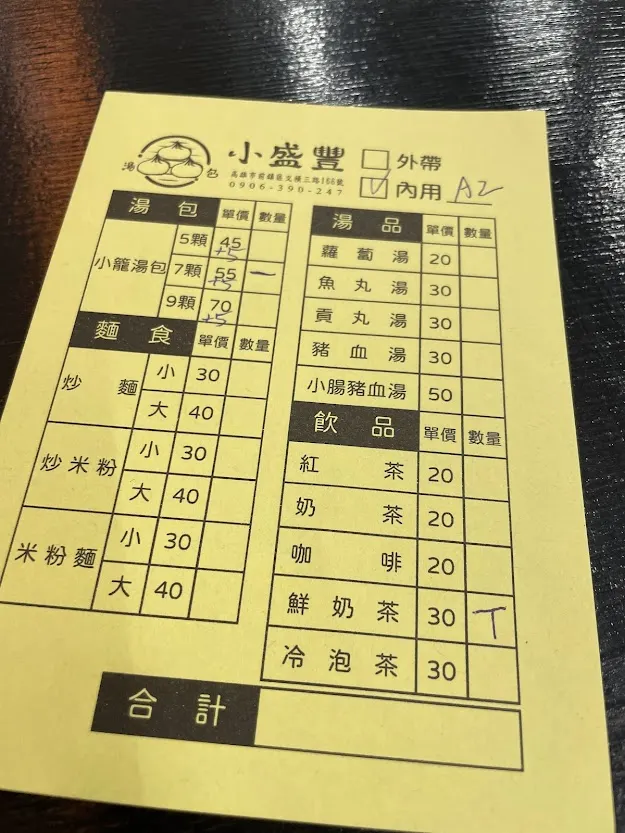 湯 包
小盛豐
高雄市前鎮區文橫三路166號
0906-390-247
外帶
V 內用 A2
湯包 單價 數量
小籠湯包 5顆 45 +5
7顆 55 +5 一
9顆 70 +5
麵食 單價 數量
炒麵 小 30
大 40
炒米粉 小 30
大 40
米粉麵 小 30
大 40
湯品 單價 數量
蘿蔔湯 20
魚丸湯 30
貢丸湯 30
豬血湯 30
小腸豬血湯 50
飲品 單價 數量
紅茶 20
奶茶 20
咖啡 20
鮮奶茶 30 T
冷泡茶 30
合計